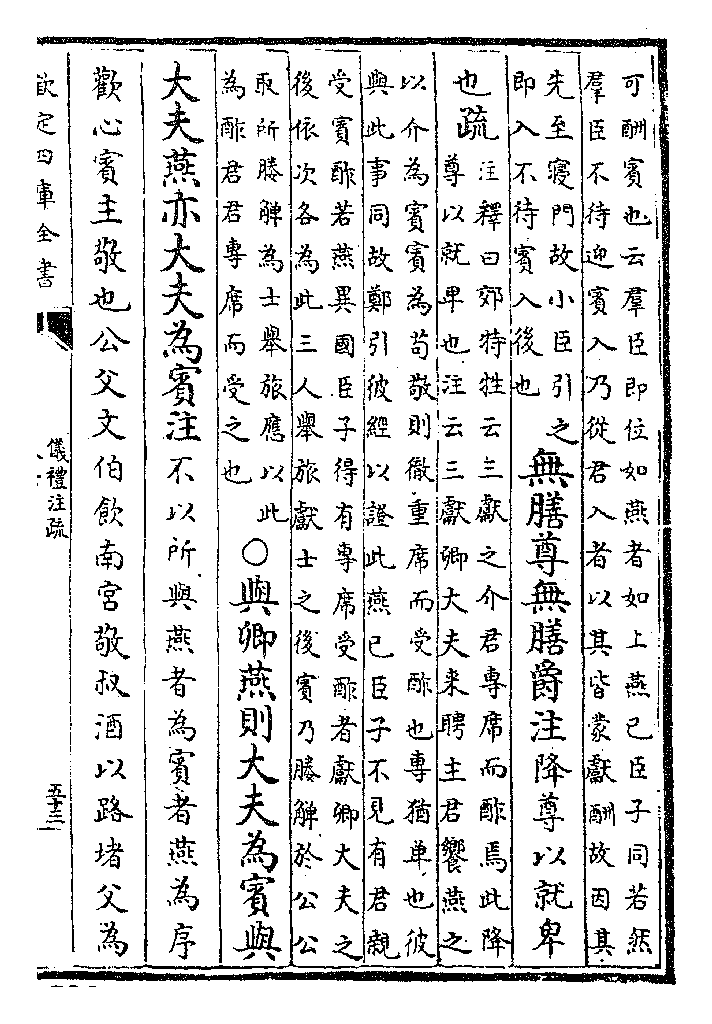 可酬賓也云羣臣即位如燕者如上燕已臣子同若然
羣臣不待迎賓入乃從君入者以其皆蒙獻酬故因其
先至寢門故小臣引之
即入不待賓入後也
無膳尊無膳爵注降尊以就卑
也疏
注釋曰郊特牲云三獻之介君專席而酢焉此降
尊以就卑也注云三獻卿大夫来聘主君饗燕之
以介為賓賓為苟敬則徹重席而受酢也專猶单也彼
與此事同故鄭引彼經以證此燕已臣子不見有君親
受賓酢若燕異國臣子得有專席受酢者獻卿大夫之
後依次各為此三人舉旅獻士之後賓乃媵觶於公公
取所媵觶為士舉旅應以此
為酢君君專席而受之也
○與卿燕則大夫為賓與
大夫燕亦大夫為賓注不以所與燕者為賓者燕為序
歡心賓主敬也公父文伯飲南宫敬叔酒以路堵父為
欽定四庫全書
儀禮注疏
五十三